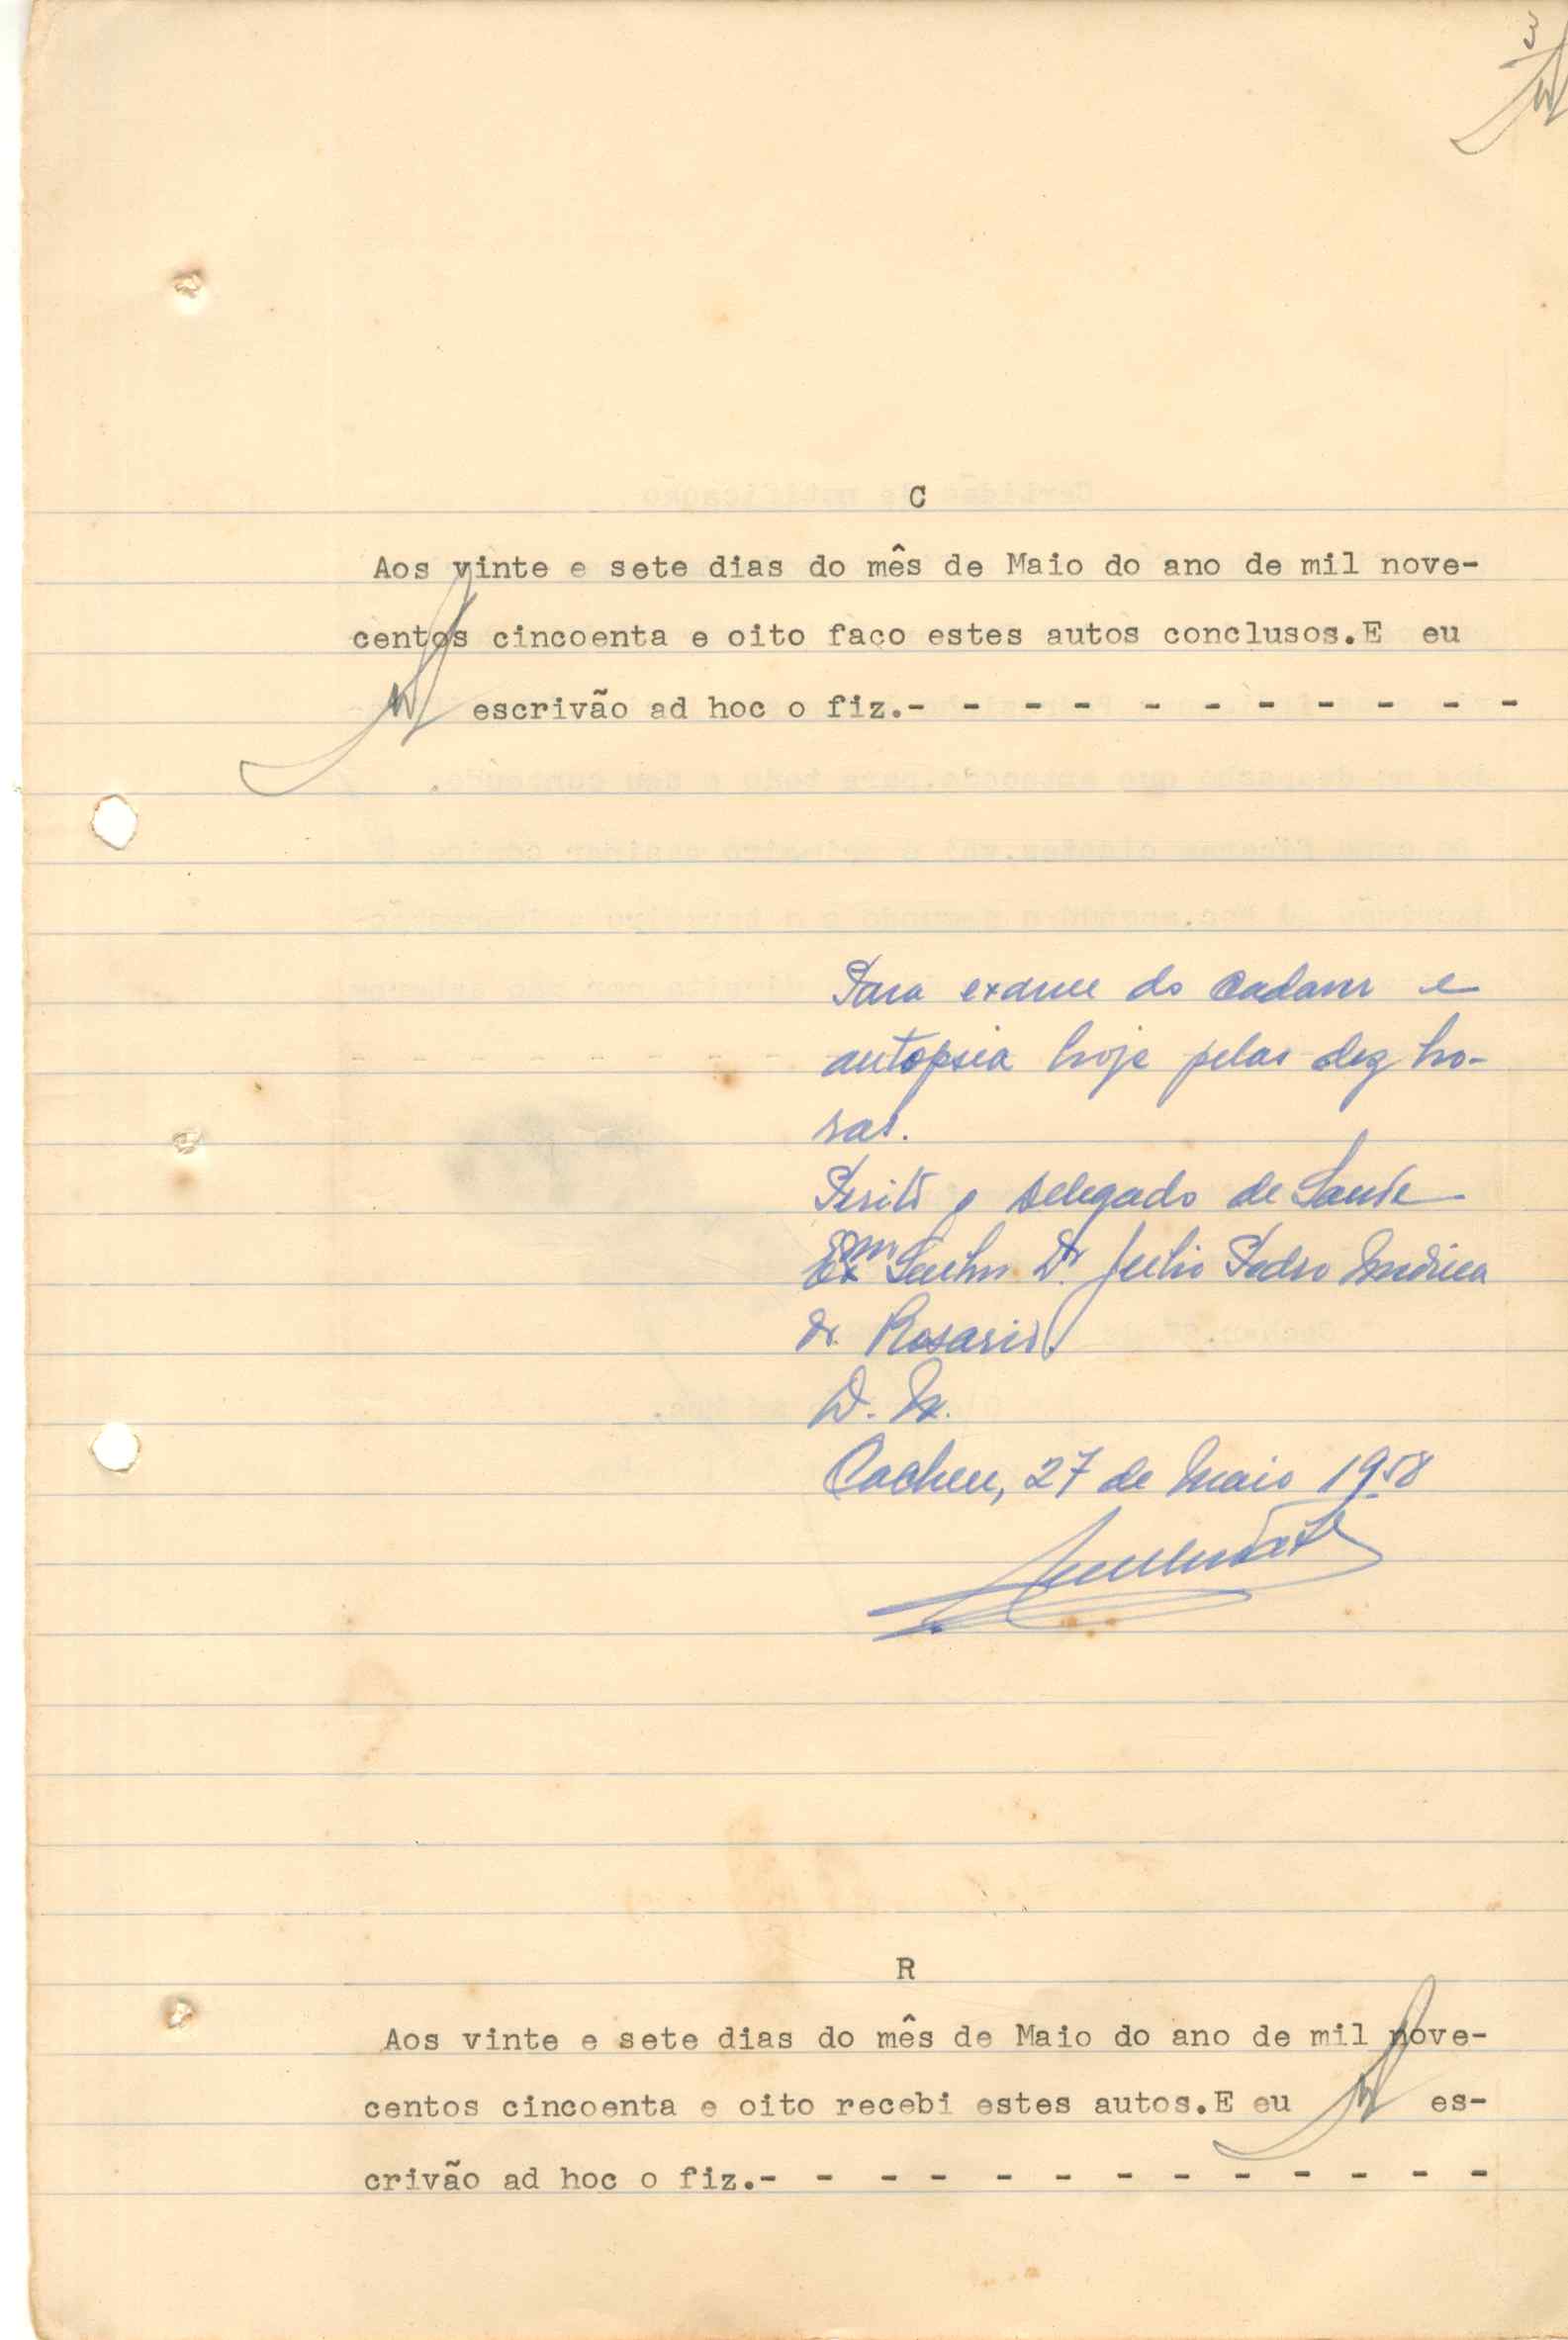 3
C
Aos vinte e sete dias do mês de Maio do ano de mil nove-
centos cincoenta e oito faço estes autos conclusos.E eu
escrivão ad hoc o fiz.- - - - - - - - - - -
Para exame do cadaver e
autopsia hoje pelas dez ho-
ras.
Perito o delegado de Saude
Exmo Senhor Dr. Julio Pedro
do Rosario.
D. N.
Cacheu, 27 de Maio 1958
R
Aos vinte e sete dias do mês de Maio do ano de mil nove-
centos cincoenta e oito recebi estes autos.E eu es-
crivão ad hoc o fiz.- - - - - - - - - - - - -